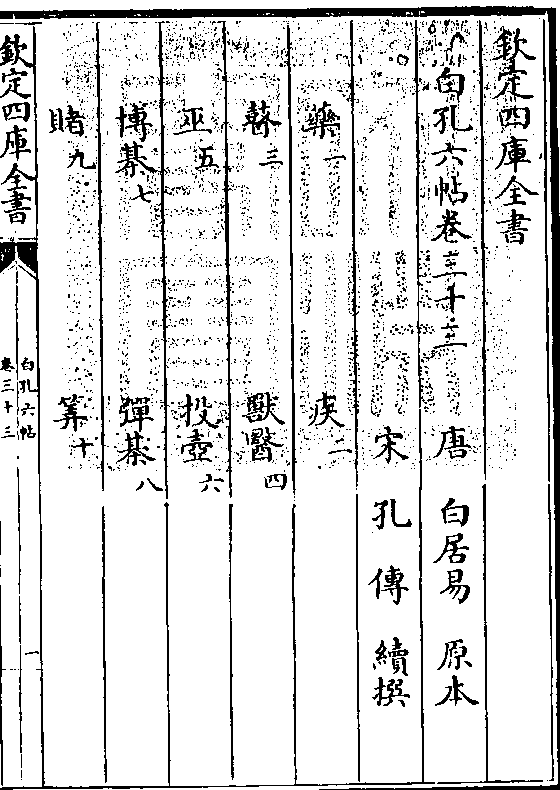 欽定四庫全書
白孔六帖卷三十三 唐 白居易 原本
宋 孔傳 續撰
藥一 疾二
三 獸醫四
巫五 投壺六
博棊七 彈棊八
賭九 筭十
欽定四庫全書 白孔六帖
卷三十三 一